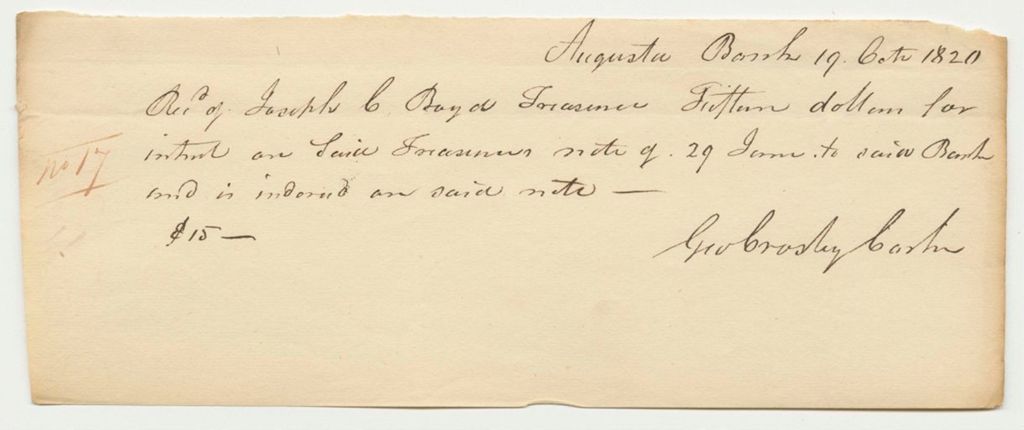 Augusta Bank 19. Octr 1820
Recd of Joseph C Boyd Treasurer Fifteen dollars for
intrest on said Treasurers note of 29 June. to said Bank
no 17
and is indorsd on said note —
$15 —
Geo Crosby Cashr